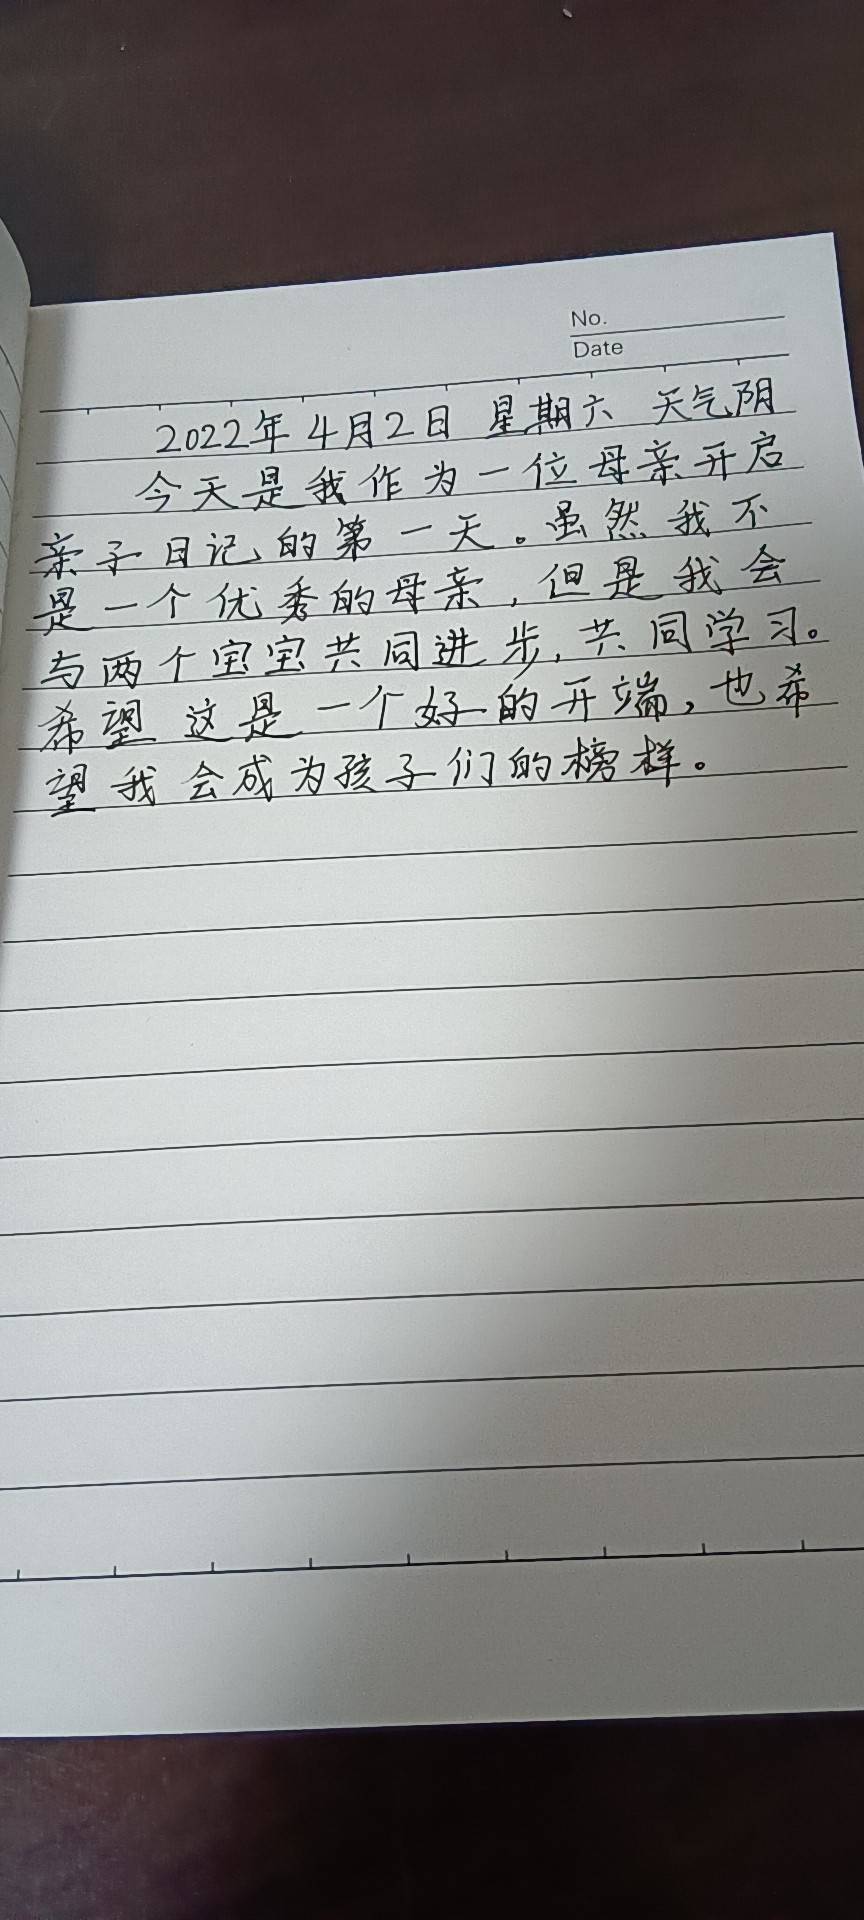 No.
Date
2022年4月2日 星期六 天气阴
今天是我作为一位母亲开启
亲子日记的第一天。虽然我不
是一个优秀的母亲，但是我会
与两个宝宝共同进步，共同学习。
希望这是一个好的开端，也希
望我会成为孩子们的榜样。